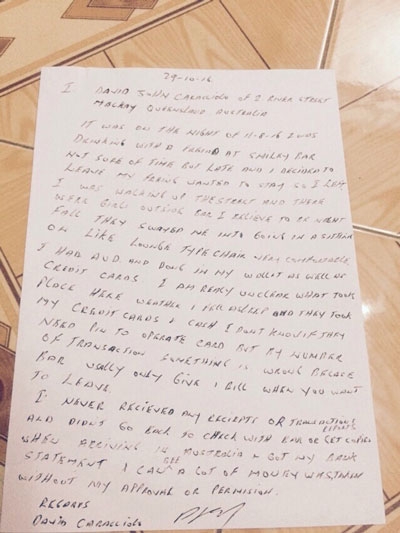 29-10-16
I DAVID JOHN CARACCIOLO OF 2 RIVER STREET
MACKAY QUEENSLAND AUSTRALIA
IT WAS ON THE NIGHT OF 11-8-16 I WAS
DRINKING WITH A FRIEND AT SMILEY BAR
NOT SURE OF TIME BUT LATE AND I DECIDED TO
LEAVE MY FRIEND WANTED TO STAY SO I LEFT
I WAS WALKING UP THE STREET AND THERE
WERE GIRLS OUTSIDE BAR I BELIEVE TO BE NIGHT
FALL THEY SWAYED ME INTO GOING IN & SITTING
ON LIKE LOUNGE TYPE CHAIR VERY COMFORTABLE
I HAD AUD. AND DONG IN MY WALLET AS WELL AS
CREDIT CARDS I AM REALY UNCLEAR WHAT TOOK
PLACE HERE WEATHER I FELL ASLEEP AND THEY TOOK
MY CREDIT CARDS & CASH I DON'T KNOW IF THEY
NEED PIN TO OPERATE CARD BUT BY NUMBER
OF TRANSACTION SOMETHING IS WRONG BECAUSE
BAR USALLY ONLY GIVE 1 BILL WHEN YOU WANT
TO LEAVE.
I NEVER RECIEVED ANY RECIEPTS OR TRANSACTIONS
AND DIDN'T GO BACK TO CHECK WITH BAR OR GET COPIES
WHEN ARIVING IN AUSTRALIA & GOT MY BANK
STATEMENT I CAN SEE A LOT OF MONEY WAS TAKEN
WITHOUT MY APPROVAL OR PERMISION.
REGARDS
DAVID CARACCIOLO